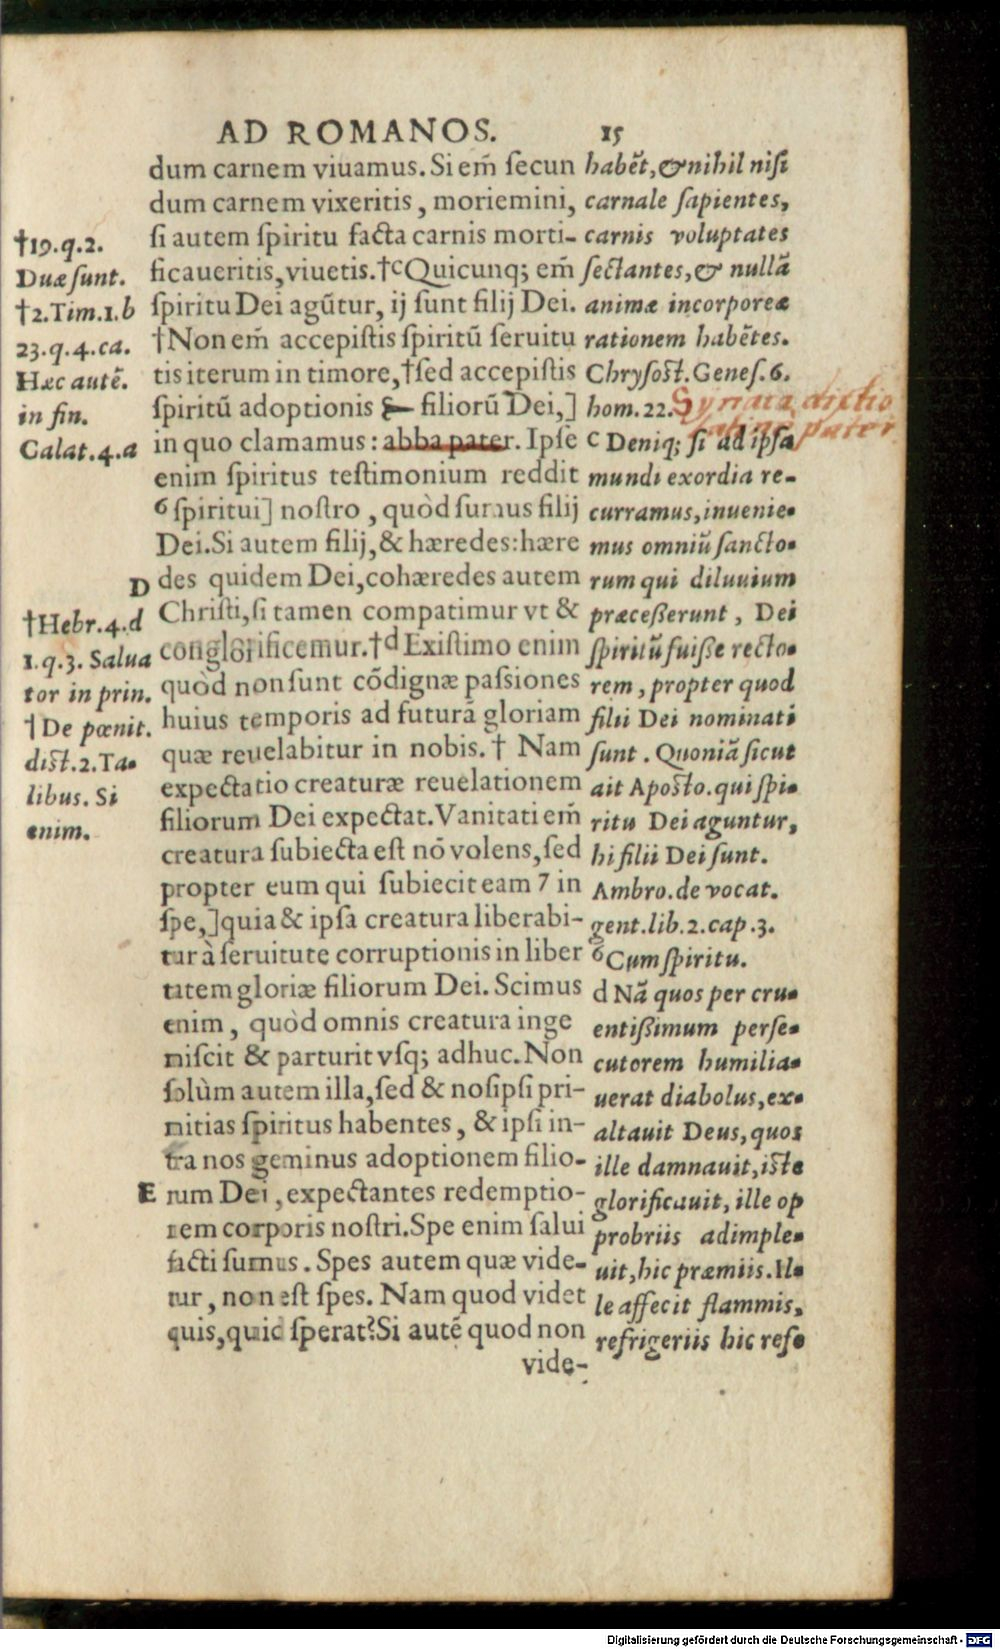 AD ROMANOS. 15
dum carnem viuamus. Si em̃ ſecun
dum carnem vixeritis, moriemini,
ſi autem ſpiritu facta carnis morti-
ficaueritis, viuetis. †ᶜQuicunq; em̃
ſpiritu Dei agũtur, ij ſunt filij Dei.
†Non em̃ accepiſtis ſpiritũ ſeruitu
tis iterum in timore, †ſed accepiſtis
ſpiritũ adoptionis filiorũ Dei,]
in quo clamamus: abba pater. Ipſe
enim ſpiritus teſtimonium reddit
⁶ſpiritui] noſtro, quòd ſumus filij
Dei. Si autem filij, & hæredes: hære
des quidem Dei, cohæredes autem
Chriſti, ſi tamen compatimur vt &
conglorificemur. †ᵈExiſtimo enim
quòd non ſunt cõdignæ paſsiones
huius temporis ad futurã gloriam
quæ reuelabitur in nobis. † Nam
expectatio creaturæ reuelationem
filiorum Dei expectat. Vanitati em̃
creatura ſubiecta eſt nõ volens, ſed
propter eum qui ſubiecit eam 7 in
ſpe,] quia & ipſa creatura liberabi-
tur à ſeruitute corruptionis in liber
tatem gloriæ filiorum Dei. Scimus
enim, quòd omnis creatura inge
miſcit & parturit vſq; adhuc. Non
ſolùm autem illa, ſed & noſipſi pri-
mitias ſpiritus habentes, & ipſi in-
tra nos geminus adoptionem filio-
E rum Dei, expectantes redemptio-
nem corporis noſtri. Spe enim ſalui
facti ſumus. Spes autem quæ vide-
tur, non eſt ſpes. Nam quod videt
quis, quid ſperat? Si autẽ quod non
vide-
†19.q.2.
Duæ ſunt.
†2.Tim.1.b
23.q.4.ca.
Hæc autẽ.
in fin.
Galat.4.a
D
†Hebr.4.d
1.q.3. Salua
tor in prin.
†De pœnit.
diſt.2.Ta-
libus. Si
enim.
habẽt, & nihil niſi
carnale ſapientes,
carnis voluptates
ſectantes, & nullã
animæ incorporeæ
rationem habẽtes.
Chryſoſt. Geneſ. 6.
hom. 22.
Syriaca dictio
pater
c Deniq; ſi ad ipſa
mundi exordia re-
curramus, inuenie-
mus omniũ ſancto-
rum qui diluuium
præceßerunt, Dei
ſpiritũ fuiße recto-
rem, propter quod
filii Dei nominati
ſunt. Quoniã ſicut
ait Apoſto. qui ſpi-
ritu Dei aguntur,
hi filii Dei ſunt.
Ambro. de vocat.
gent. lib. 2. cap. 3.
⁶Cum ſpiritu.
d Nã quos per cru-
entißimum perſe-
cutorem humilia-
uerat diabolus, ex-
altauit Deus, quos
ille damnauit, iſte
glorificauit, ille op
probriis adimple-
uit, hic præmiis. Il-
le affecit flammis,
refrigeriis hic reſ-
Digitalisierung gefördert durch die Deutsche Forschungsgemeinschaft - DFG